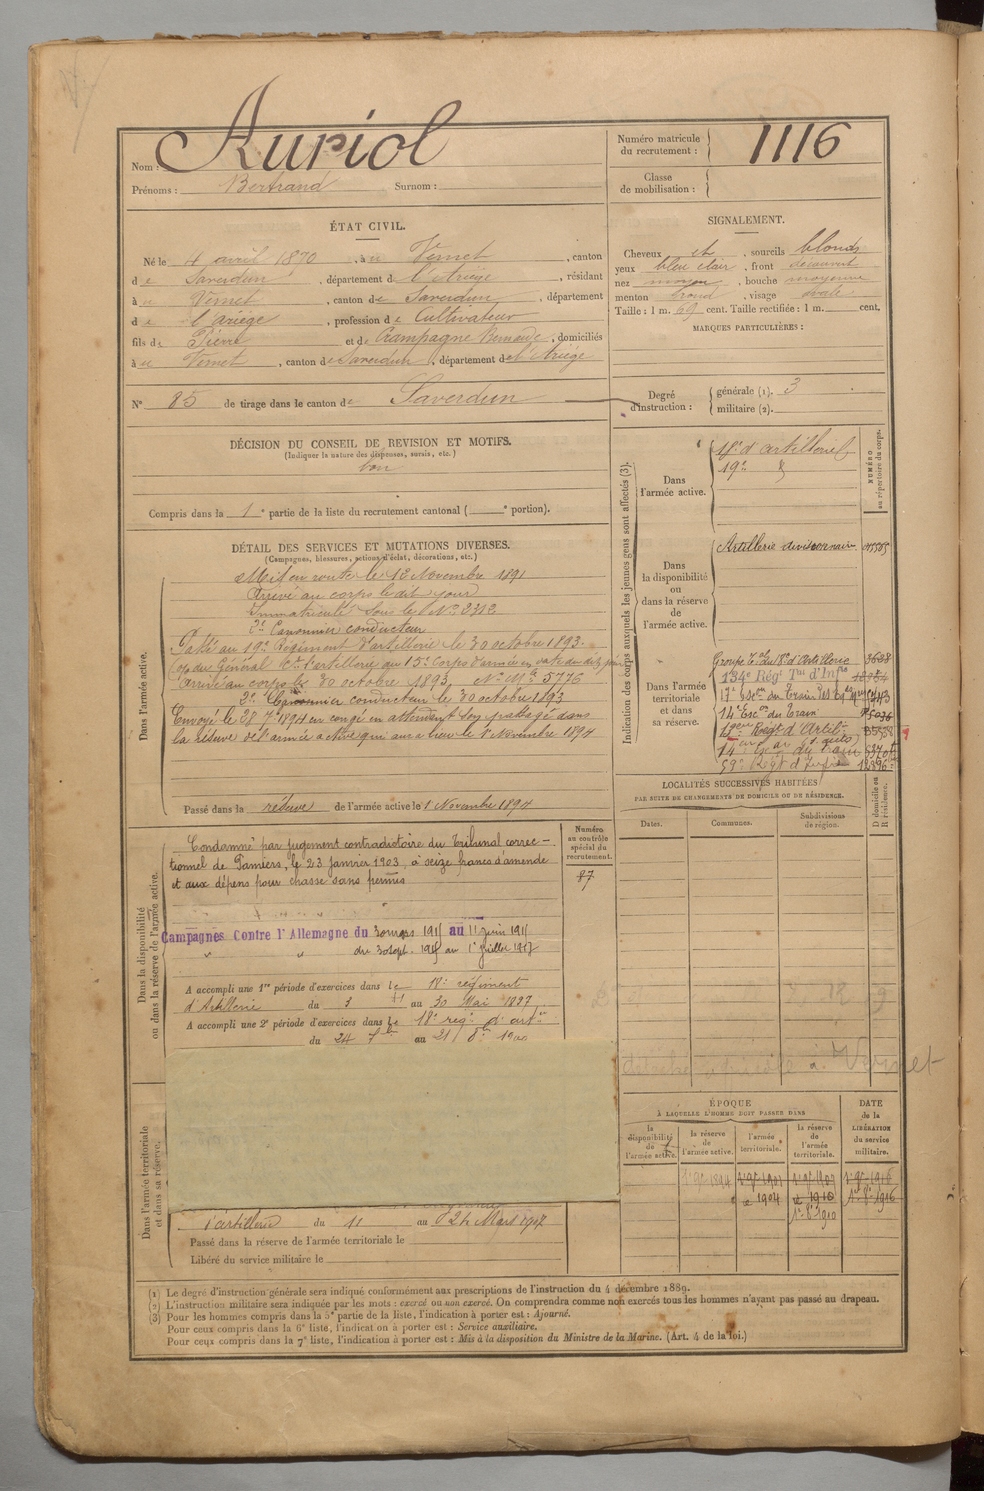 Nom : Auriol
Prénoms : Bertrand Surnom :
Numéro matricule du recrutement : 1116
Classe de mobilisation :
ÉTAT CIVIL.
Né le 4 avril 1870, à u Vernet, canton
d e Saverdun, département de l'Ariège, résidant
à u Vernet, canton de Saverdun, département
d e l'Ariège, profession de Cultivateur
fils de Pierre et de Crampagne Bernade, domiciliés
à u Vernet, canton de Saverdun, département de l'Ariège
N° 85 de tirage dans le canton de Saverdun
SIGNALEMENT.
Cheveux et, sourcils blonds
yeux bleu clair, front découvert
nez moyen, bouche moyenne
menton rond, visage ovale
Taille : 1 m. 69 cent. Taille rectifiée : 1 m. cent.
MARQUES PARTICULIÈRES :
Degré d'instruction : générale (1). 3
militaire (2).
DÉCISION DU CONSEIL DE REVISION ET MOTIFS.
(Indiquer la nature des dispenses, sursis, etc.)
bon
Compris dans la 1e partie de la liste du recrutement cantonal ( e portion).
DÉTAIL DES SERVICES ET MUTATIONS DIVERSES.
(Campagnes, blessures, actions d'éclat, décorations, etc.)
Dans l'armée active.
Mis en route le 12 Novembre 1891
Arrivé au corps le dit jour
Immatriculé sous le No 2312
2e Canonnier conducteur
Passé au 19e Régiment d'artillerie le 30 octobre 1893.
Arrivé au corps le 30 octobre 1893, No Mle 5776
2e Canonnier conducteur le 30 octobre 1893
Envoyé le 28 7bre 1894 en congé en attendant son passage dans
la réserve de l'armée active qui aura lieu le 1 Novembre 1894
Passé dans la réserve de l'armée active le 1 Novembre 1894
Indication des corps auxquels les jeunes gens sont affectés (3).
NUMÉRO au répertoire du corps.
Dans l'armée active.
18e d'artillerie
19e
Dans la disponibilité ou dans la réserve de l'armée active.
Artillerie divisionnaire
Dans l'armée territoriale et dans sa réserve.
Groupe Tal du 18e d'Artillerie
134e Régt Tal d'Infie
17e Escon du Train des Eq
14e Escon du Train
18eme Regt d'Artil
14eme Escon du Train
59e Regt d'Infie
Dans la disponibilité ou dans la réserve de l'armée active.
Numéro au contrôle spécial du recrutement.
87
Condamné par jugement contradictoire du Tribunal correc-
tionnel de Pamiers, le 23 janvier 1903, à seize francs d'amende
et aux dépens pour chasse sans permis
Campagnes Contre l'Allemagne du 30 mars 1915 au 11 juin 1915
" " du 30 sept. 1915 au 1er Juillet 1917
A accompli une 1re période d'exercices dans le 18e régiment
d'Artillerie du 3 au 30 Mai 1897
A accompli une 2e période d'exercices dans le 18e reg d'art
du 24 7bre au 21 8bre 1900
LOCALITÉS SUCCESSIVES HABITÉES
PAR SUITE DE CHANGEMENTS DE DOMICILE OU DE RÉSIDENCE.
D domicile ou R résidence.
Dates. Communes. Subdivisions de région.
détaché agricole à Vernet
ÉPOQUE
À LAQUELLE L'HOMME DOIT PASSER DANS
DATE de la LIBÉRATION du service militaire.
la disponibilité de l'armée active. la réserve de l'armée active. l'armée territoriale. la réserve de l'armée territoriale.
Dans l'armée territoriale et dans sa réserve.
d'artillerie du 11 au 24 Mars 1907
Passé dans la réserve de l'armée territoriale le
Libéré du service militaire le
(1) Le degré d'instruction générale sera indiqué conformément aux prescriptions de l'instruction du 4 décembre 1889.
(2) L'instruction militaire sera indiquée par les mots : exercé ou non exercé. On comprendra comme non exercés tous les hommes n'ayant pas passé au drapeau.
(3) Pour les hommes compris dans la 5e partie de la liste, l'indication à porter est : Ajourné.
Pour ceux compris dans la 6e liste, l'indication à porter est : Service auxiliaire.
Pour ceux compris dans la 7e liste, l'indication à porter est : Mis à la disposition du Ministre de la Marine. (Art. 4 de la loi.)